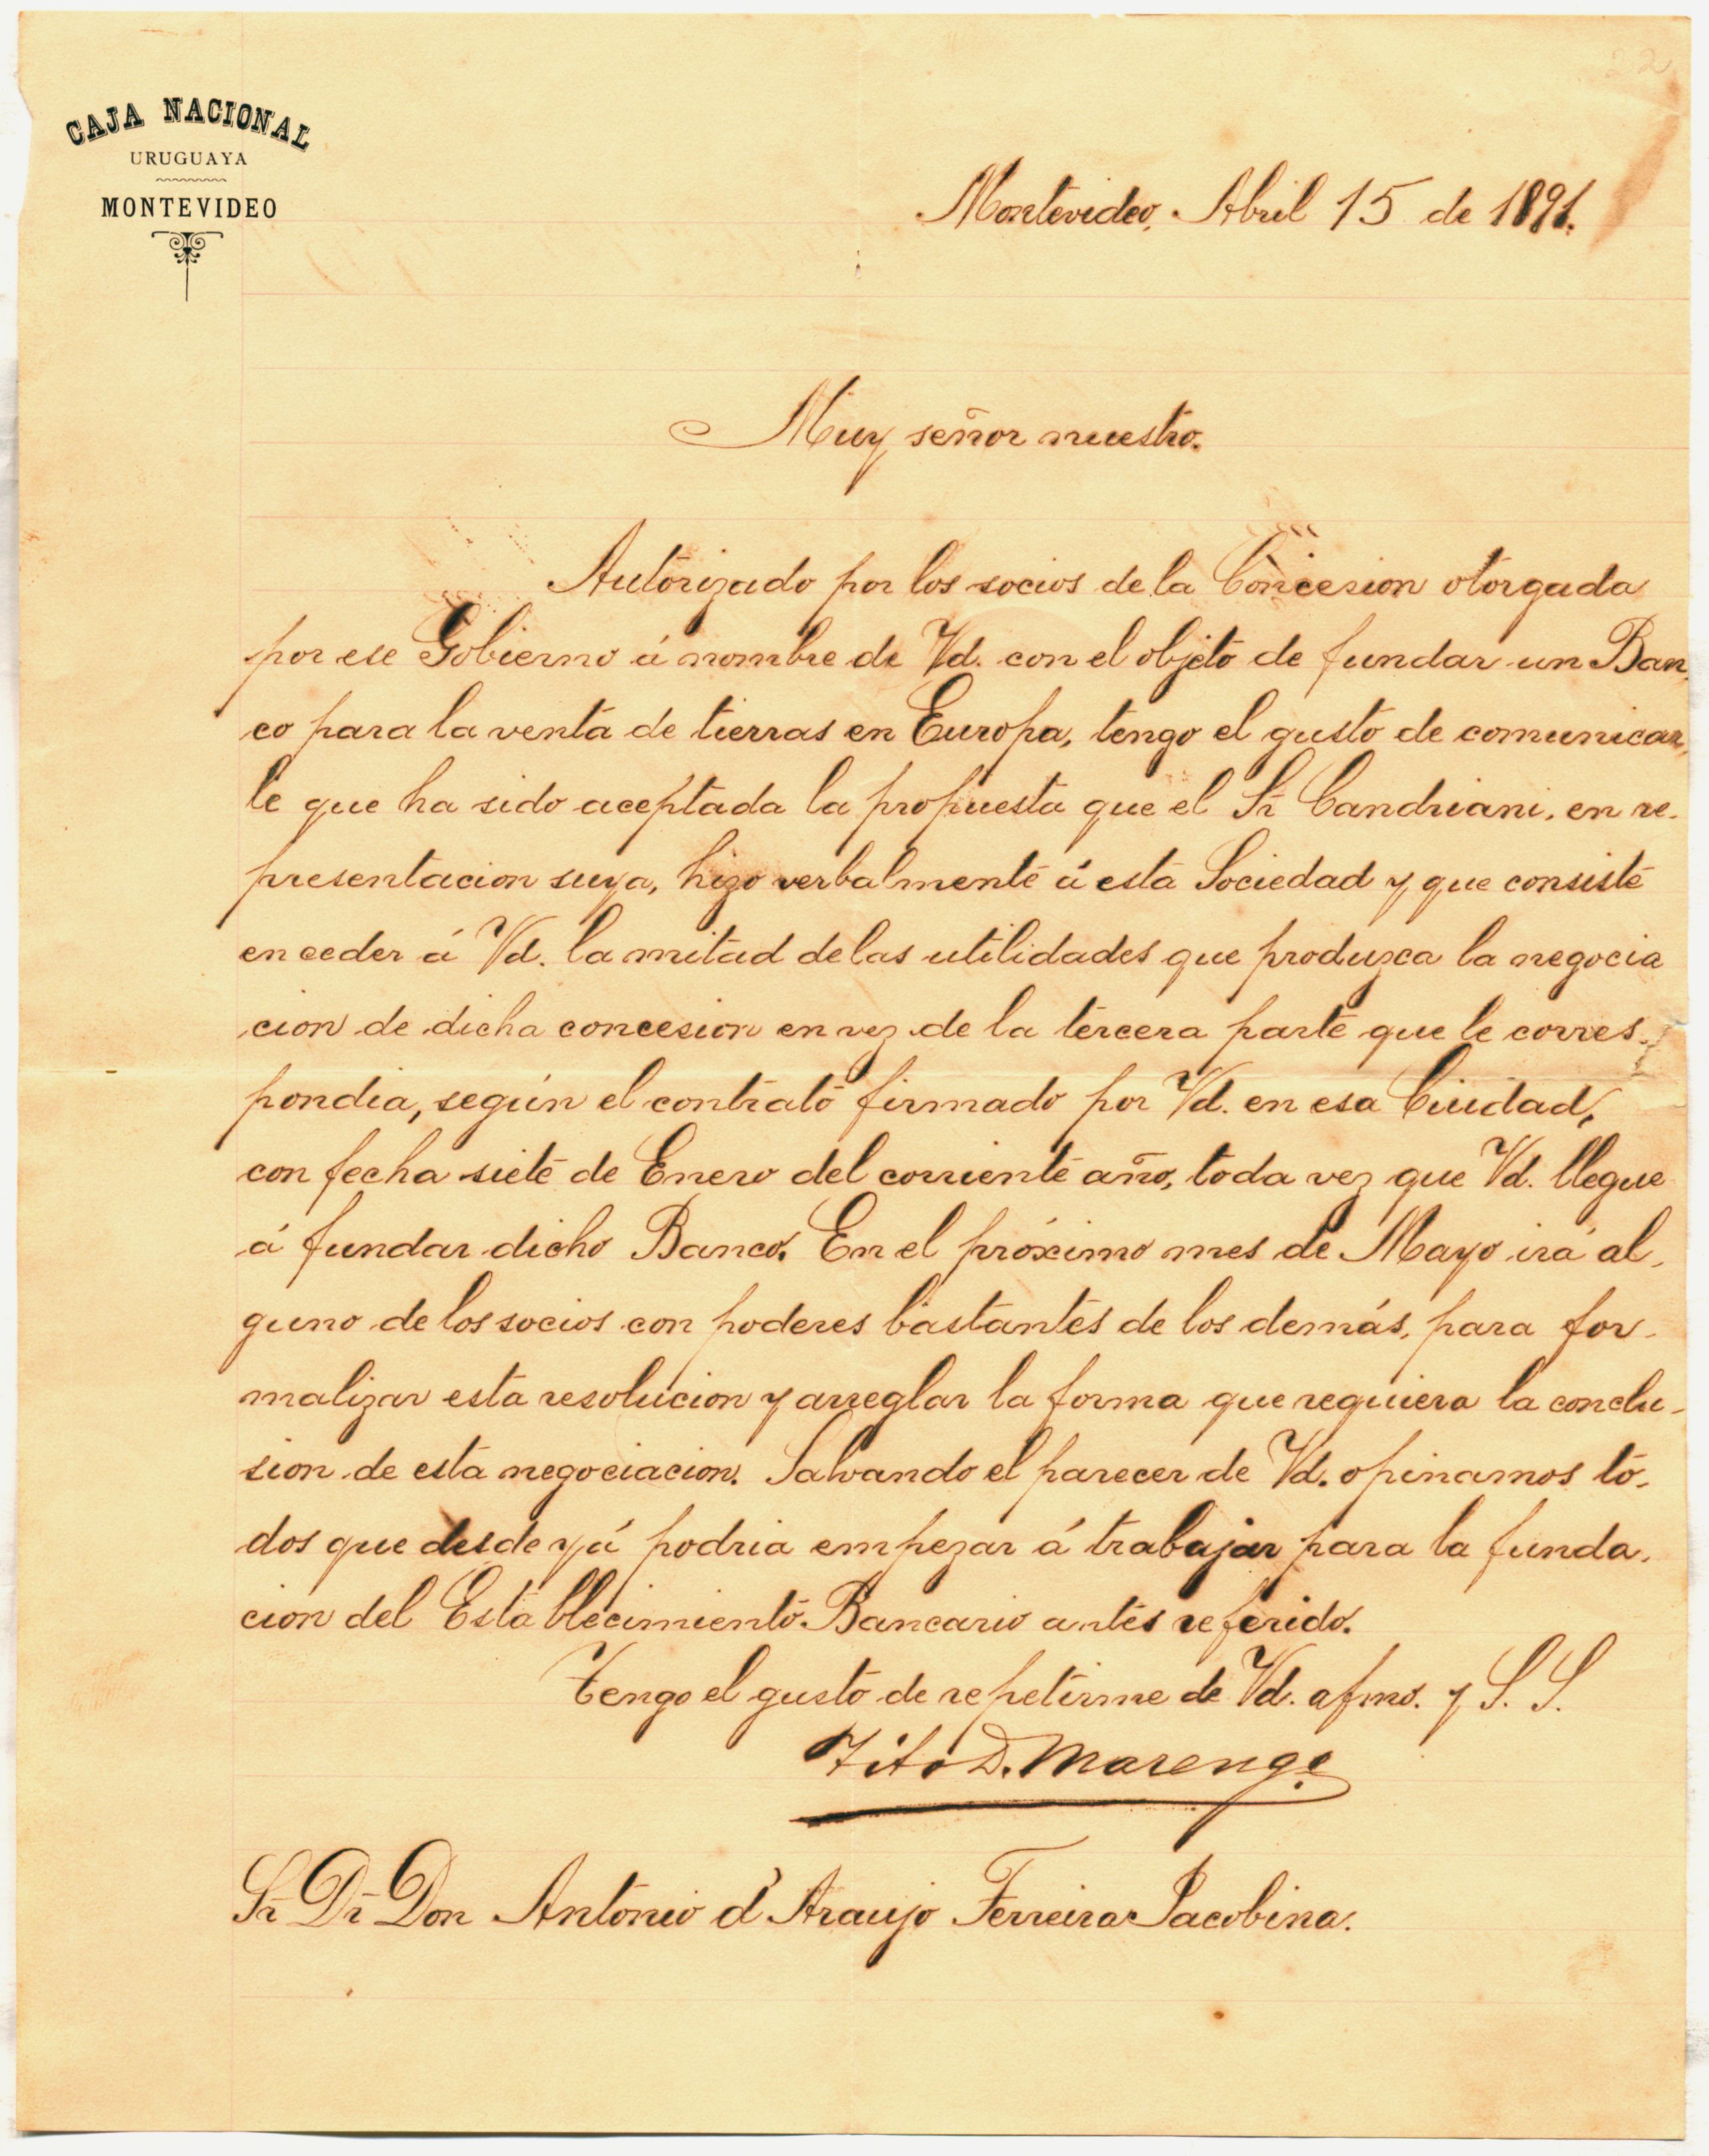 22
CAJA NACIONAL
URUGUAYA
MONTEVIDEO
Montevideo, Abril 15 de 1891.
Muy señor nuestro.
Autorizado por los socios de la Concesion otorgada
por ese Gobierno á nombre de Vd. con el objeto de fundar un Ban
co para la venta de tierras en Europa, tengo el gusto de comunicar,
le que ha sido aceptada la propuesta que el Sr Candriani, en re-
presentacion suya, hizo verbalmente á esta Sociedad y que consiste
en ceder á Vd. la mitad de las utilidades que produzca la negocia
cion de dicha concesion en vez de la tercera parte que le corres-
pondia, según el contrato firmado por Vd. en esa Ciudad,
con fecha siete de Enero del corriente año, toda vez que Vd. llegue
á fundar dicho Banco. En el próximo mes de Mayo irá al-
guno de los socios con poderes bastantes de los demás, para for-
malizar esta resolucion y arreglar la forma que requiera la conclu-
sion de esta negociacion. Salvando el parecer de Vd. opinamos to-
dos que desde yá podria empezar á trabajar para la funda-
cion del Establecimiento Bancario antes referido.
Tengo el gusto de repetirme de Vd. afmo. y S. S.
Tito D. Marengo
Sr Dr Don Antonio d'Araujo Ferreira Jacobina.